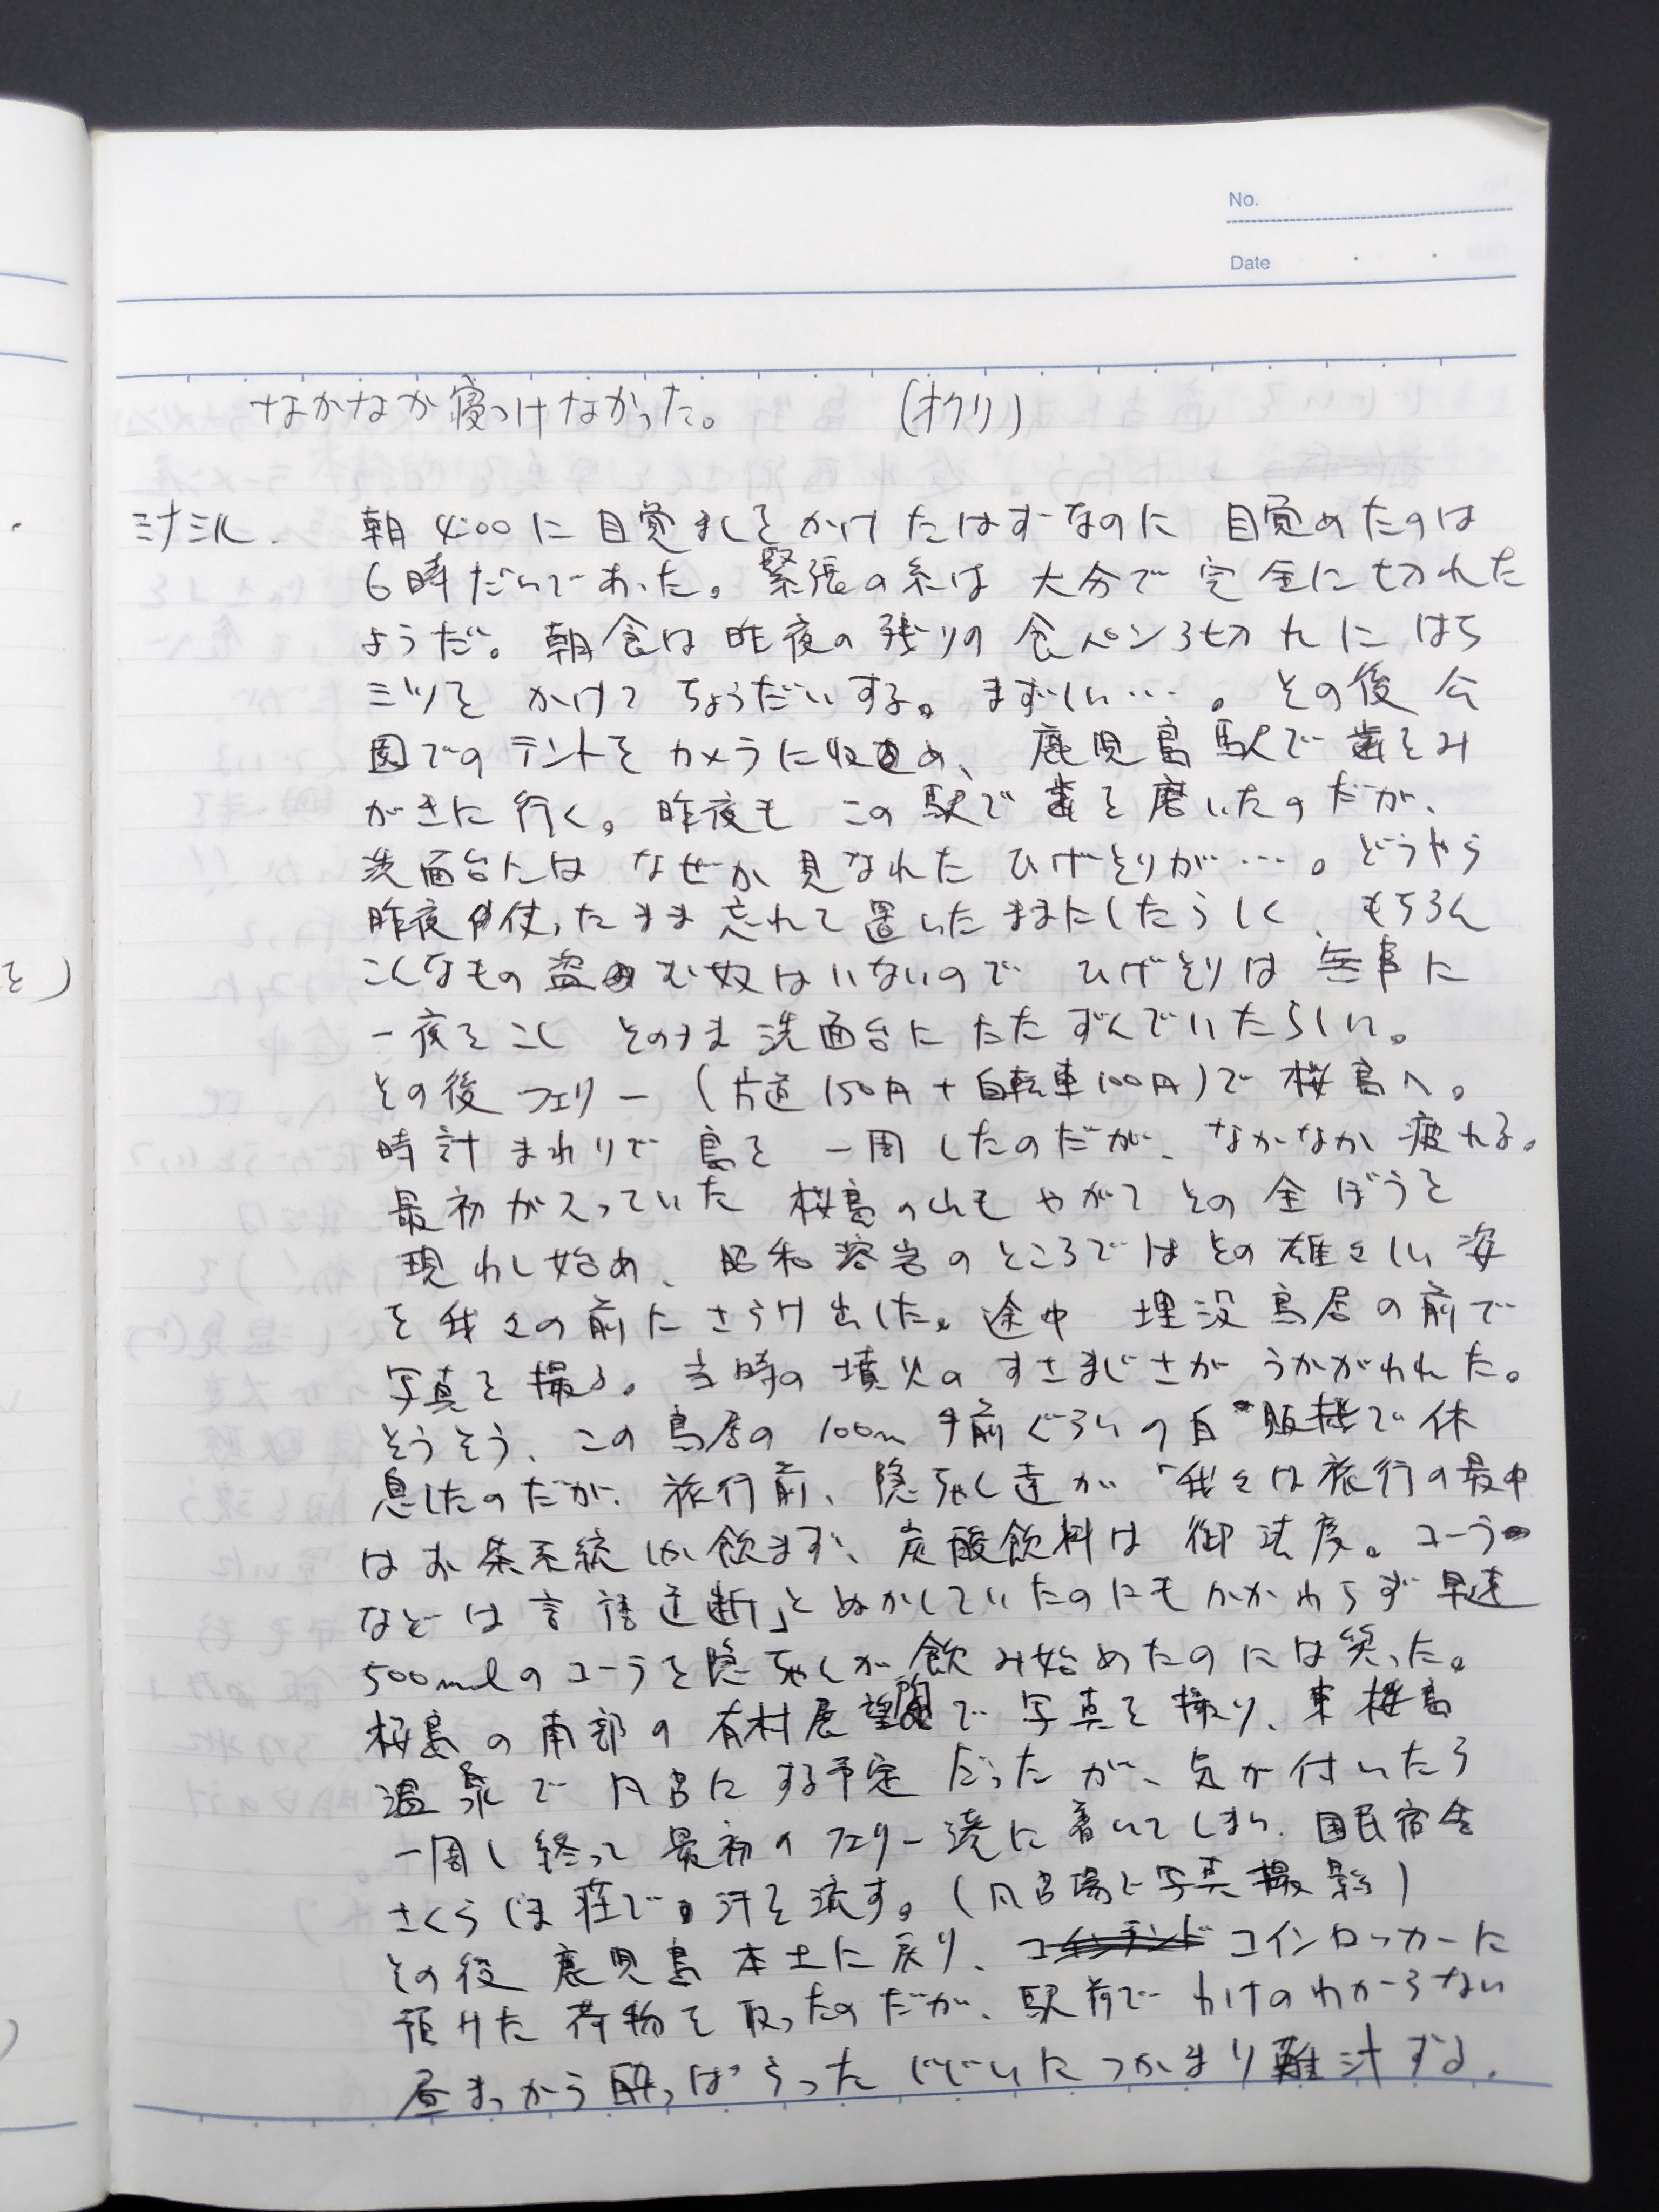 No.
Date
なかなか寝つけなかった。 (オクリ)
ミナミル. 朝4:00に目覚ましをかけたはずなのに目覚めたのは
6時だらであった。緊張の糸は大分で完全に切れた
ようだ。朝食は昨夜の残りの食パン3切れにはち
ミツをかけてちょうだいする。まずしい…。その後公
園でのテントをカメラに収め、鹿児島駅で歯をみ
がきに行く。昨夜もこの駅で歯を磨いたのだが、
洗面台にはなぜか見なれたひげそりが…。どうやら
昨夜使ったまま忘れて置いたままにしたらしく、もちろん
こんなもの盗む奴はいないのでひげそりは無事に
一夜をこしそのまま洗面台にたたずんでいたらしい。
その後フェリー(片道150円+自転車100円)で桜島へ。
時計まわりで島を一周したのだが、なかなか疲れる。
最初がスっていた桜島の山もやがてその全ぼうを
現わし始め、昭和溶岩のところではその雄々しい姿
を我々の前にさらけ出した。途中埋没鳥居の前で
写真を撮る。当時の墳火のすさまじさがうかがわれた。
そうそう、この鳥居の100m手前ぐらいの自販機で休
息したのだが、旅行前、隠し達が「我々は旅行の最中
はお茶系統しか飲まず、炭酸飲料は御法度。コーラ
などは言語道断」とぬかしていたのにもかかわらず早速
500mlのコーラを隠しが飲み始めたのには笑った。
桜島の南部の有村展望で写真を撮り、東桜島
温泉で風呂にする予定だったが、気が付いたら
一周し終って最初のフェリー港に着いてしまい、国民宿舎
さくらじま荘で汗を流す。(風呂場で写真撮影)
その後鹿児島本土に戻り、コインロッカーに
預けた荷物を取ったのだが、駅前でわけのわからない
昼まっから酔っぱらったじじいにつかまり難汁する。
を)